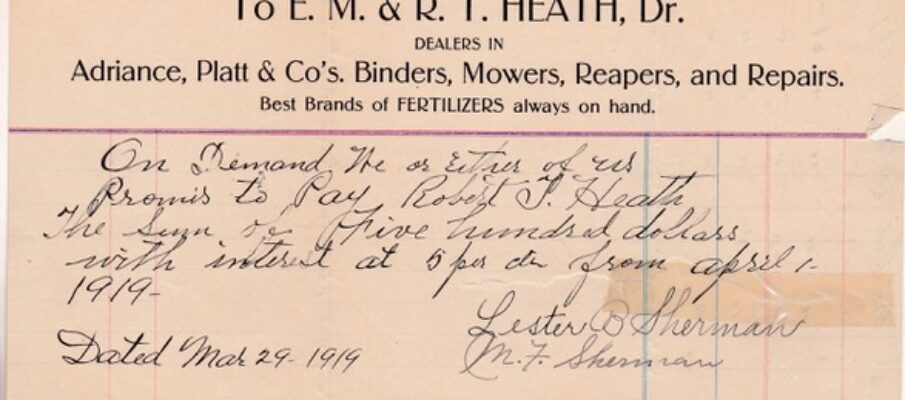 To E. M. & R. T. HEATH, Dr.
DEALERS IN
Adriance, Platt & Co's. Binders, Mowers, Reapers, and Repairs.
Best Brands of FERTILIZERS always on hand.
On Demand We or Either of us
Promis to Pay Robert T. Heath
The Sum of Five hundred dollars
with interest at 5 per from april 1-
1919-
Lester B Sherman
Dated Mar 29-1919
M. F. Sherman